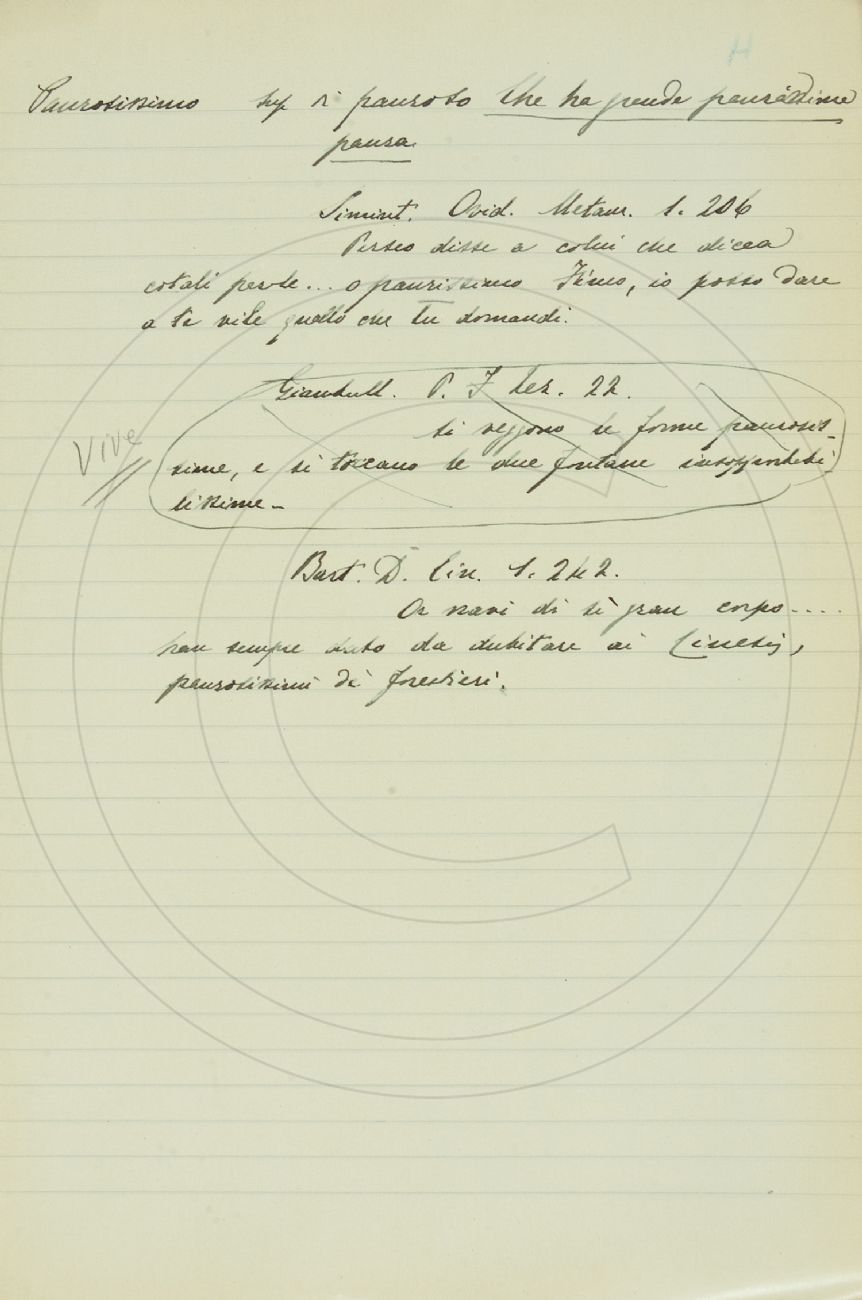 H
Paurosissimo sup di pauroso Che ha grande paura
paura.
Simint. Ovid. Metam. 1. 206
Perseo disse a colui che dicea
cotali parole... o paurissimo Fineo, io posso dare
a te vile quello che tu domandi.
Giambull. P. F Lez. 22.
Si veggono le forme paurosis-
Vive
sime, e si toccano le due fontane
lissime -
Bart. D. Cin. 1. 242.
Or navi di sì gran corpo....
han sempre dato da dubitare ai Cinesi,
paurosissimi de' forestieri.